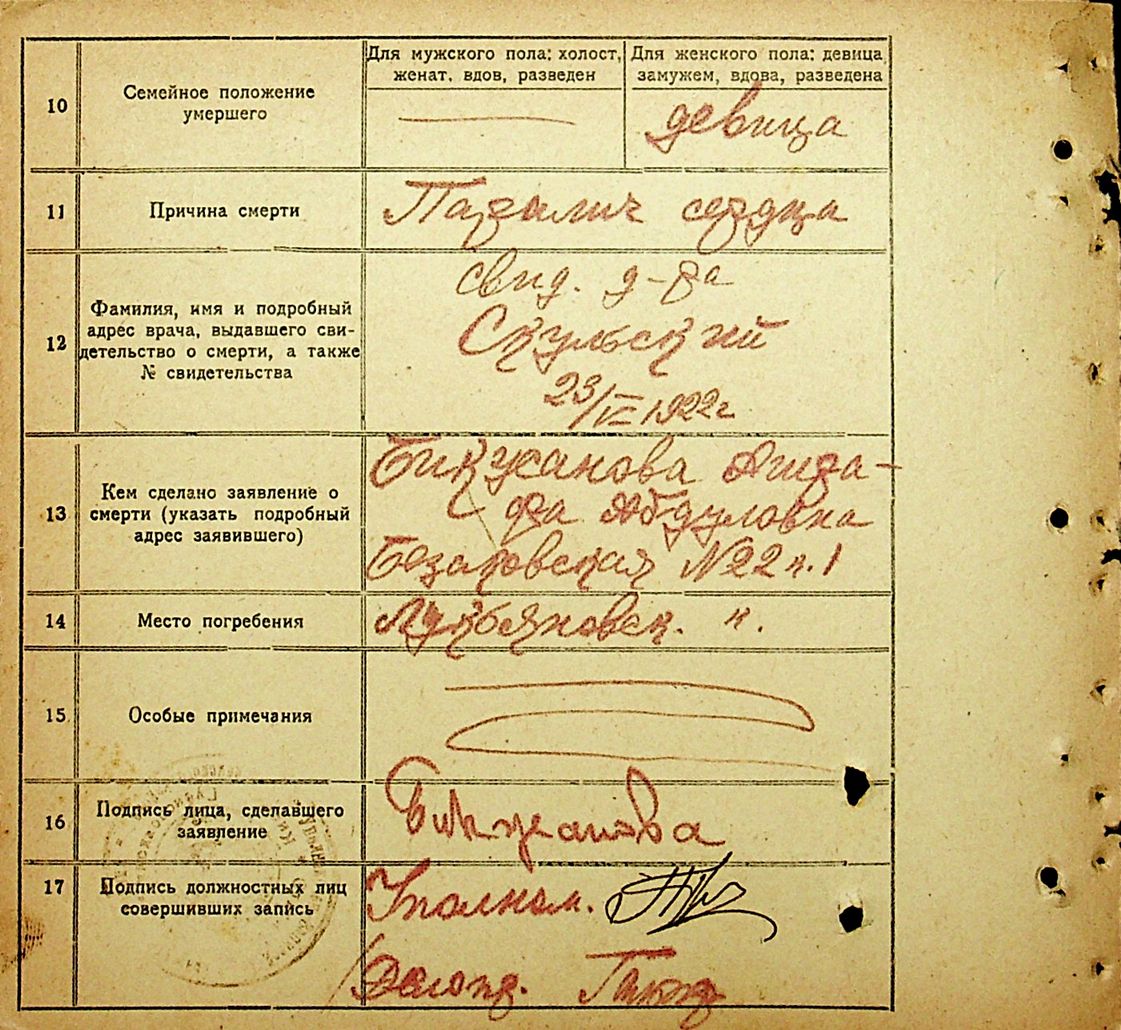 Для мужского пола: холост, женат, вдов, разведен
Для женского пола: девица, замужем, вдова, разведена
10
Семейное положение
умершего
девица
11
Причина смерти
Паралич сердца
12
Фамилия, имя и подробный
адрес врача, выдавшего сви-
детельство о смерти, а также
№ свидетельства
свид. д-ра
Скульский
1922 г
13
Кем сделано заявление о
смерти (указать подробный
адрес заявившего)
Бикусанова
фа Абдуловна
Безаковская № 22 к. 1
14
Место погребения
Лукьяновск. к.
15
Особые примечания
16
Подпись лица, сделавшего
заявление
Бикусанова
17
Подпись должностных лиц
совершивших запись
Уполном.
Делопр.